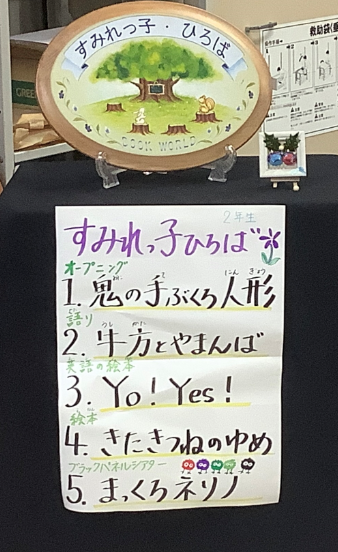 すみれっ子・ひろば
BOOK WORLD
GREEN
救助袋
2年生
すみれっ子ひろば
オープニング
1. 鬼の手ぶくろ人形
おに て にん ぎょう
語り
かた
2. 牛方とやまんば
うし かた
英語の絵本
3. Yo! Yes!
絵本
えほん
4. きたきつねのゆめ
ブラックパネルシアター
5. まっくろネリノ